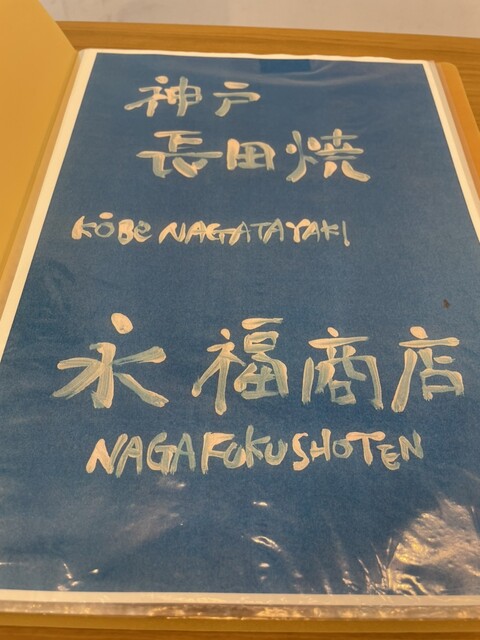 神戸
長田焼
KōBe NAGATAYAKI
永福商店
NAGAFUKUSHOTEN